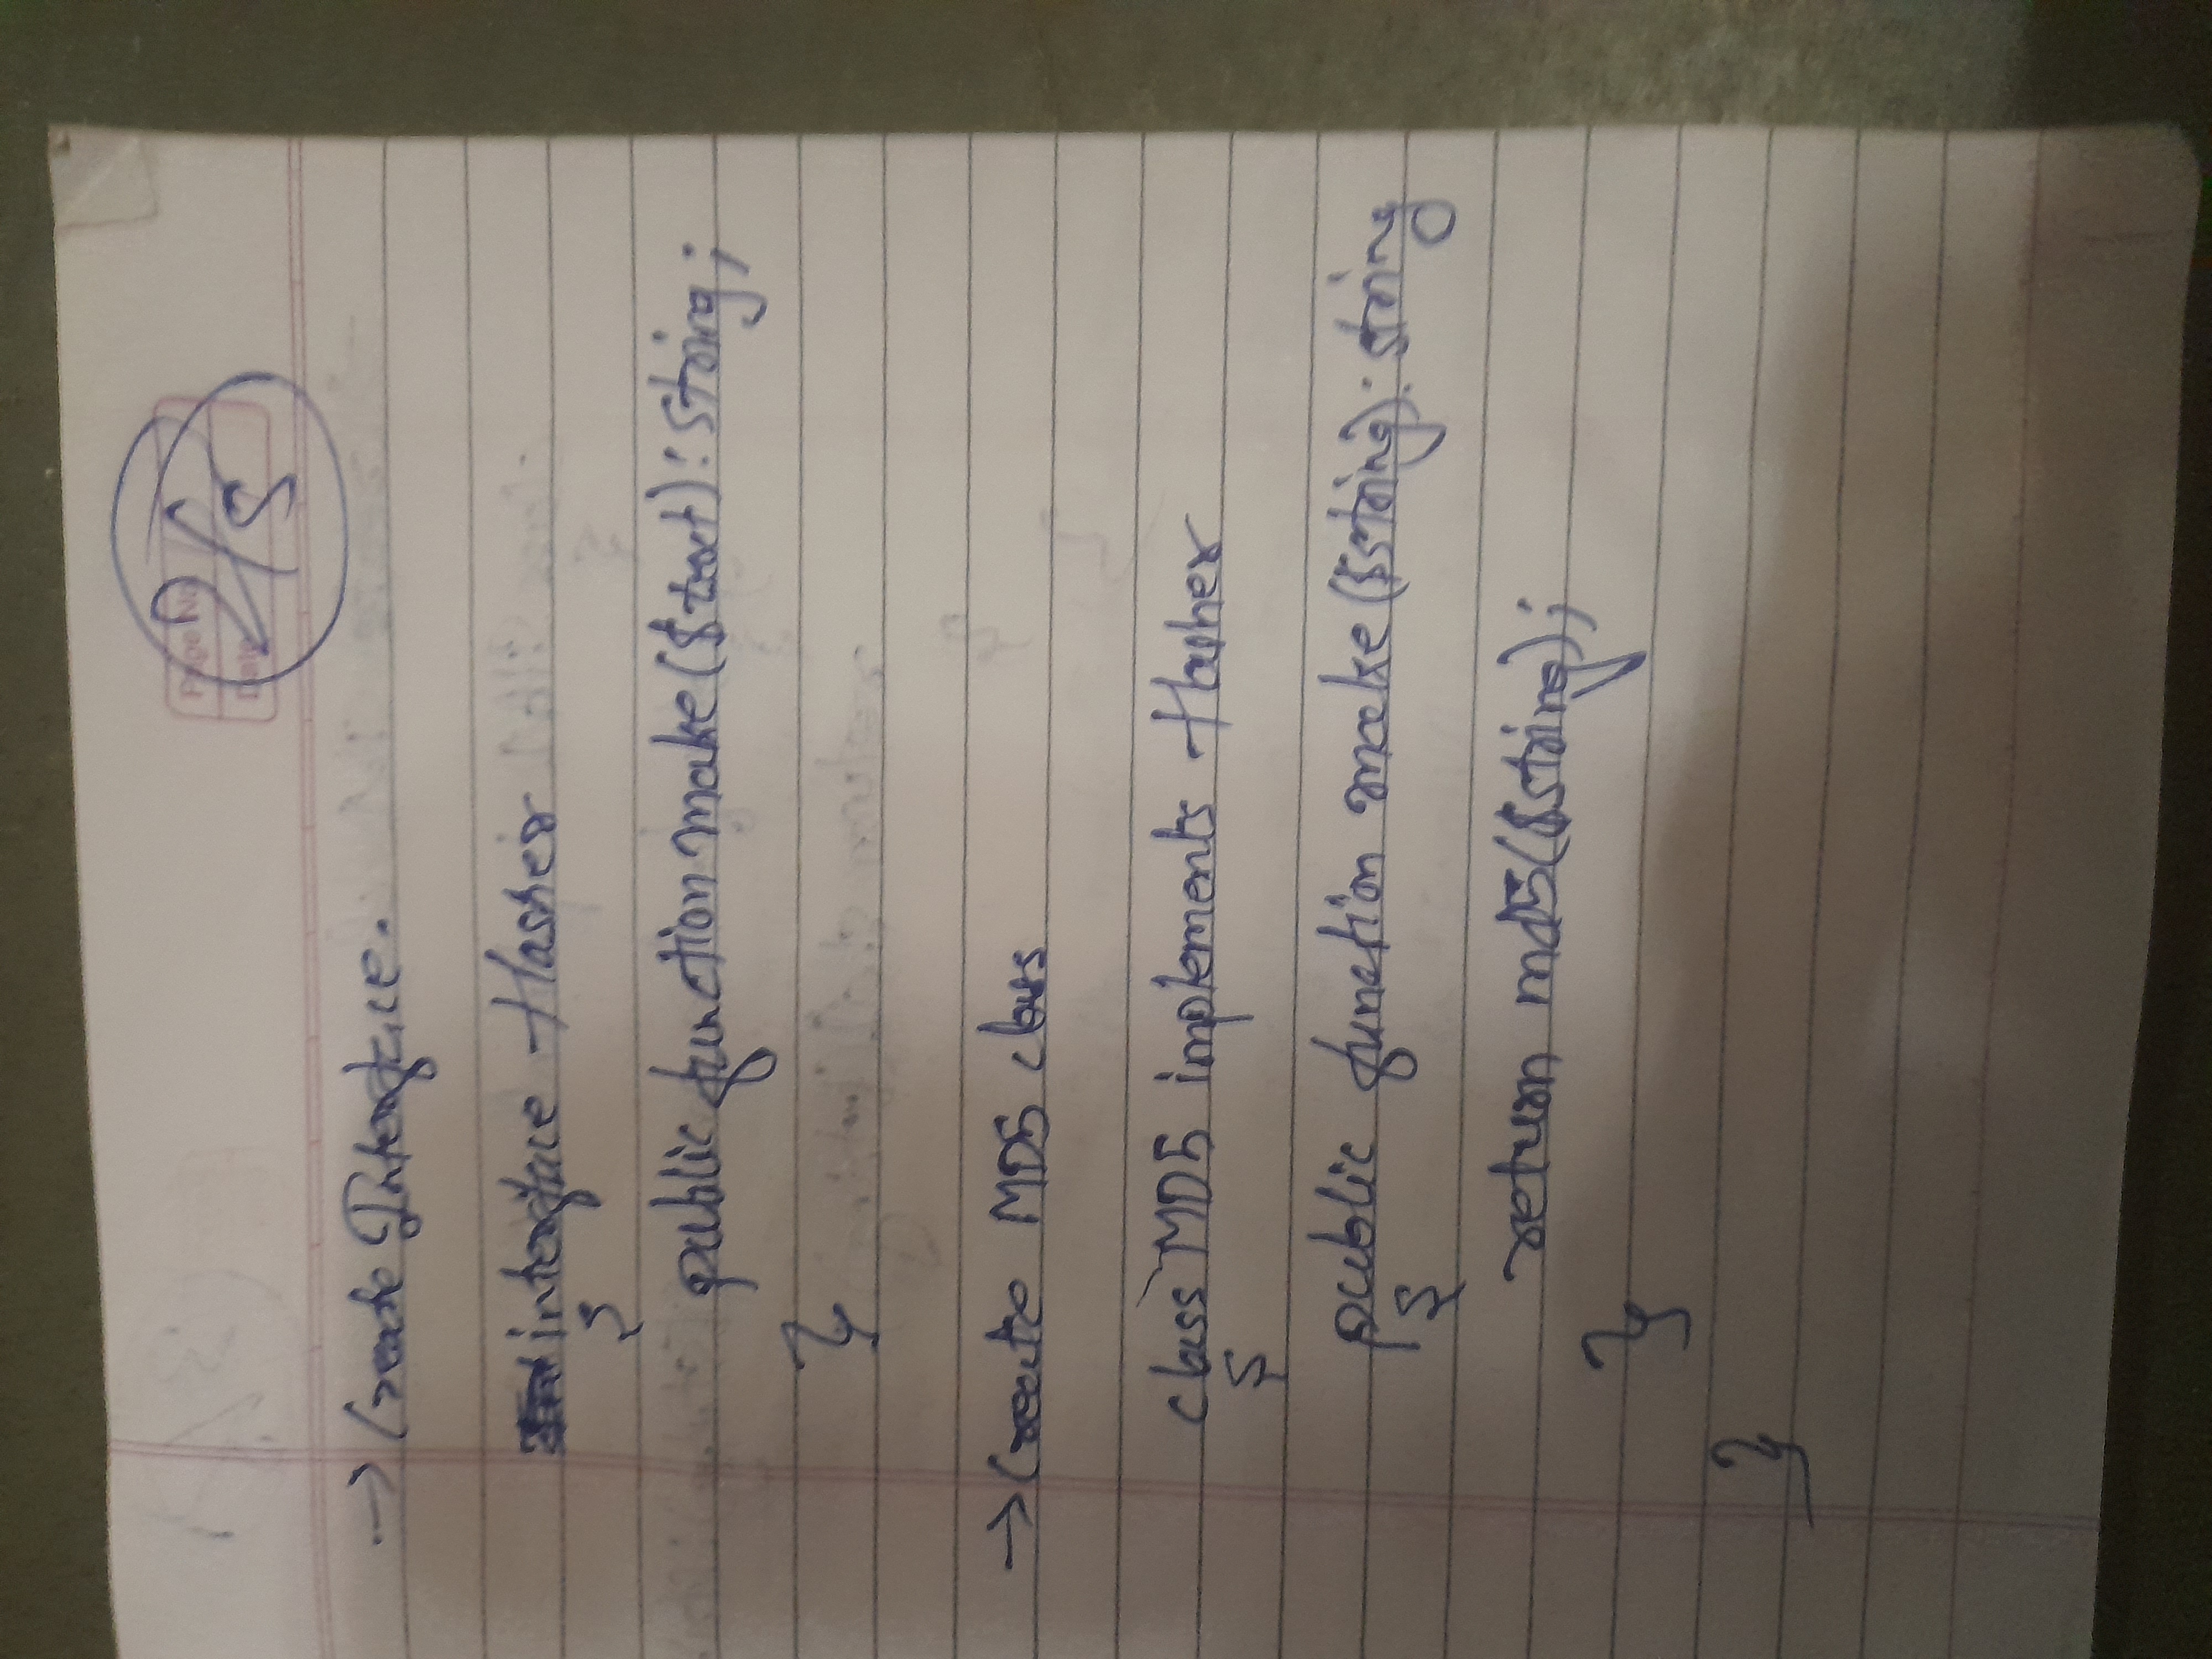 Page No
Date
2/5
→ Create Interface.
interface Hasher
{
public function make($text): string;
}
→ Create MD5 class
class MD5 implements Hasher
{
public function make($string): string
{
return md5($string);
}
}